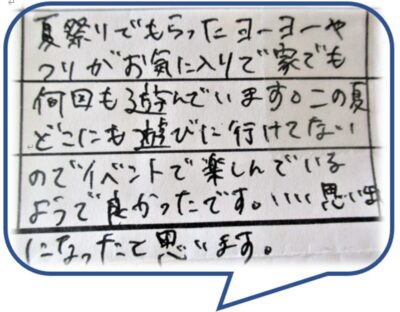 夏祭りでもらったヨーヨーや
つりがお気に入りで家でも
何回も遊んでいます。この夏
どこにも遊びに行けてない
のでイベントで楽しんでいる
ようで良かったです。いい思い出
になったと思います。